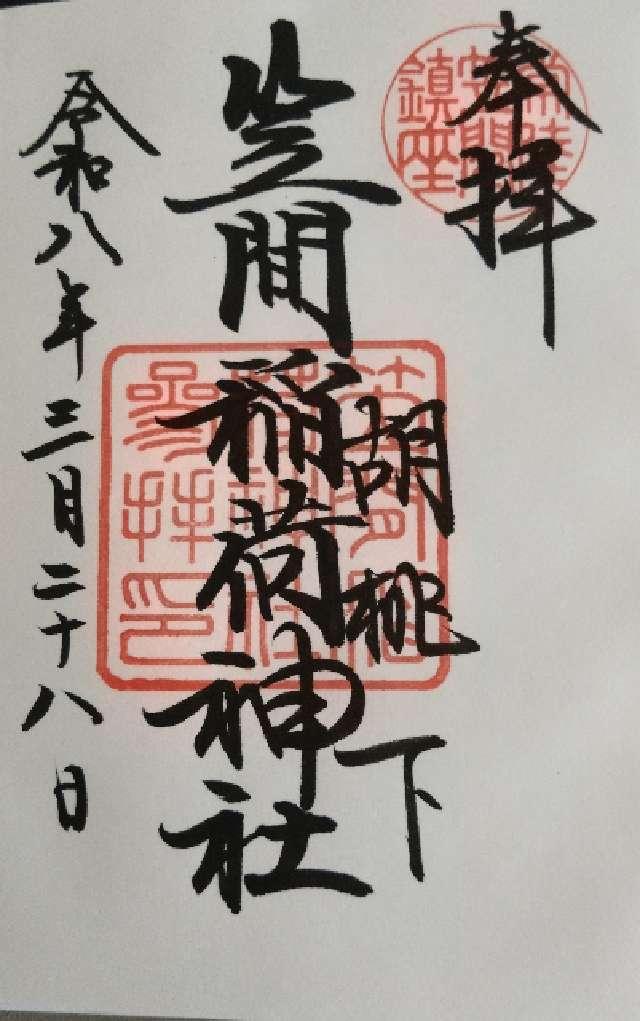 奉拝
常陸笠間鎮座
胡桃下
笠間稲荷神社
笠間稲荷神社参拝印
令和八年三月二十八日